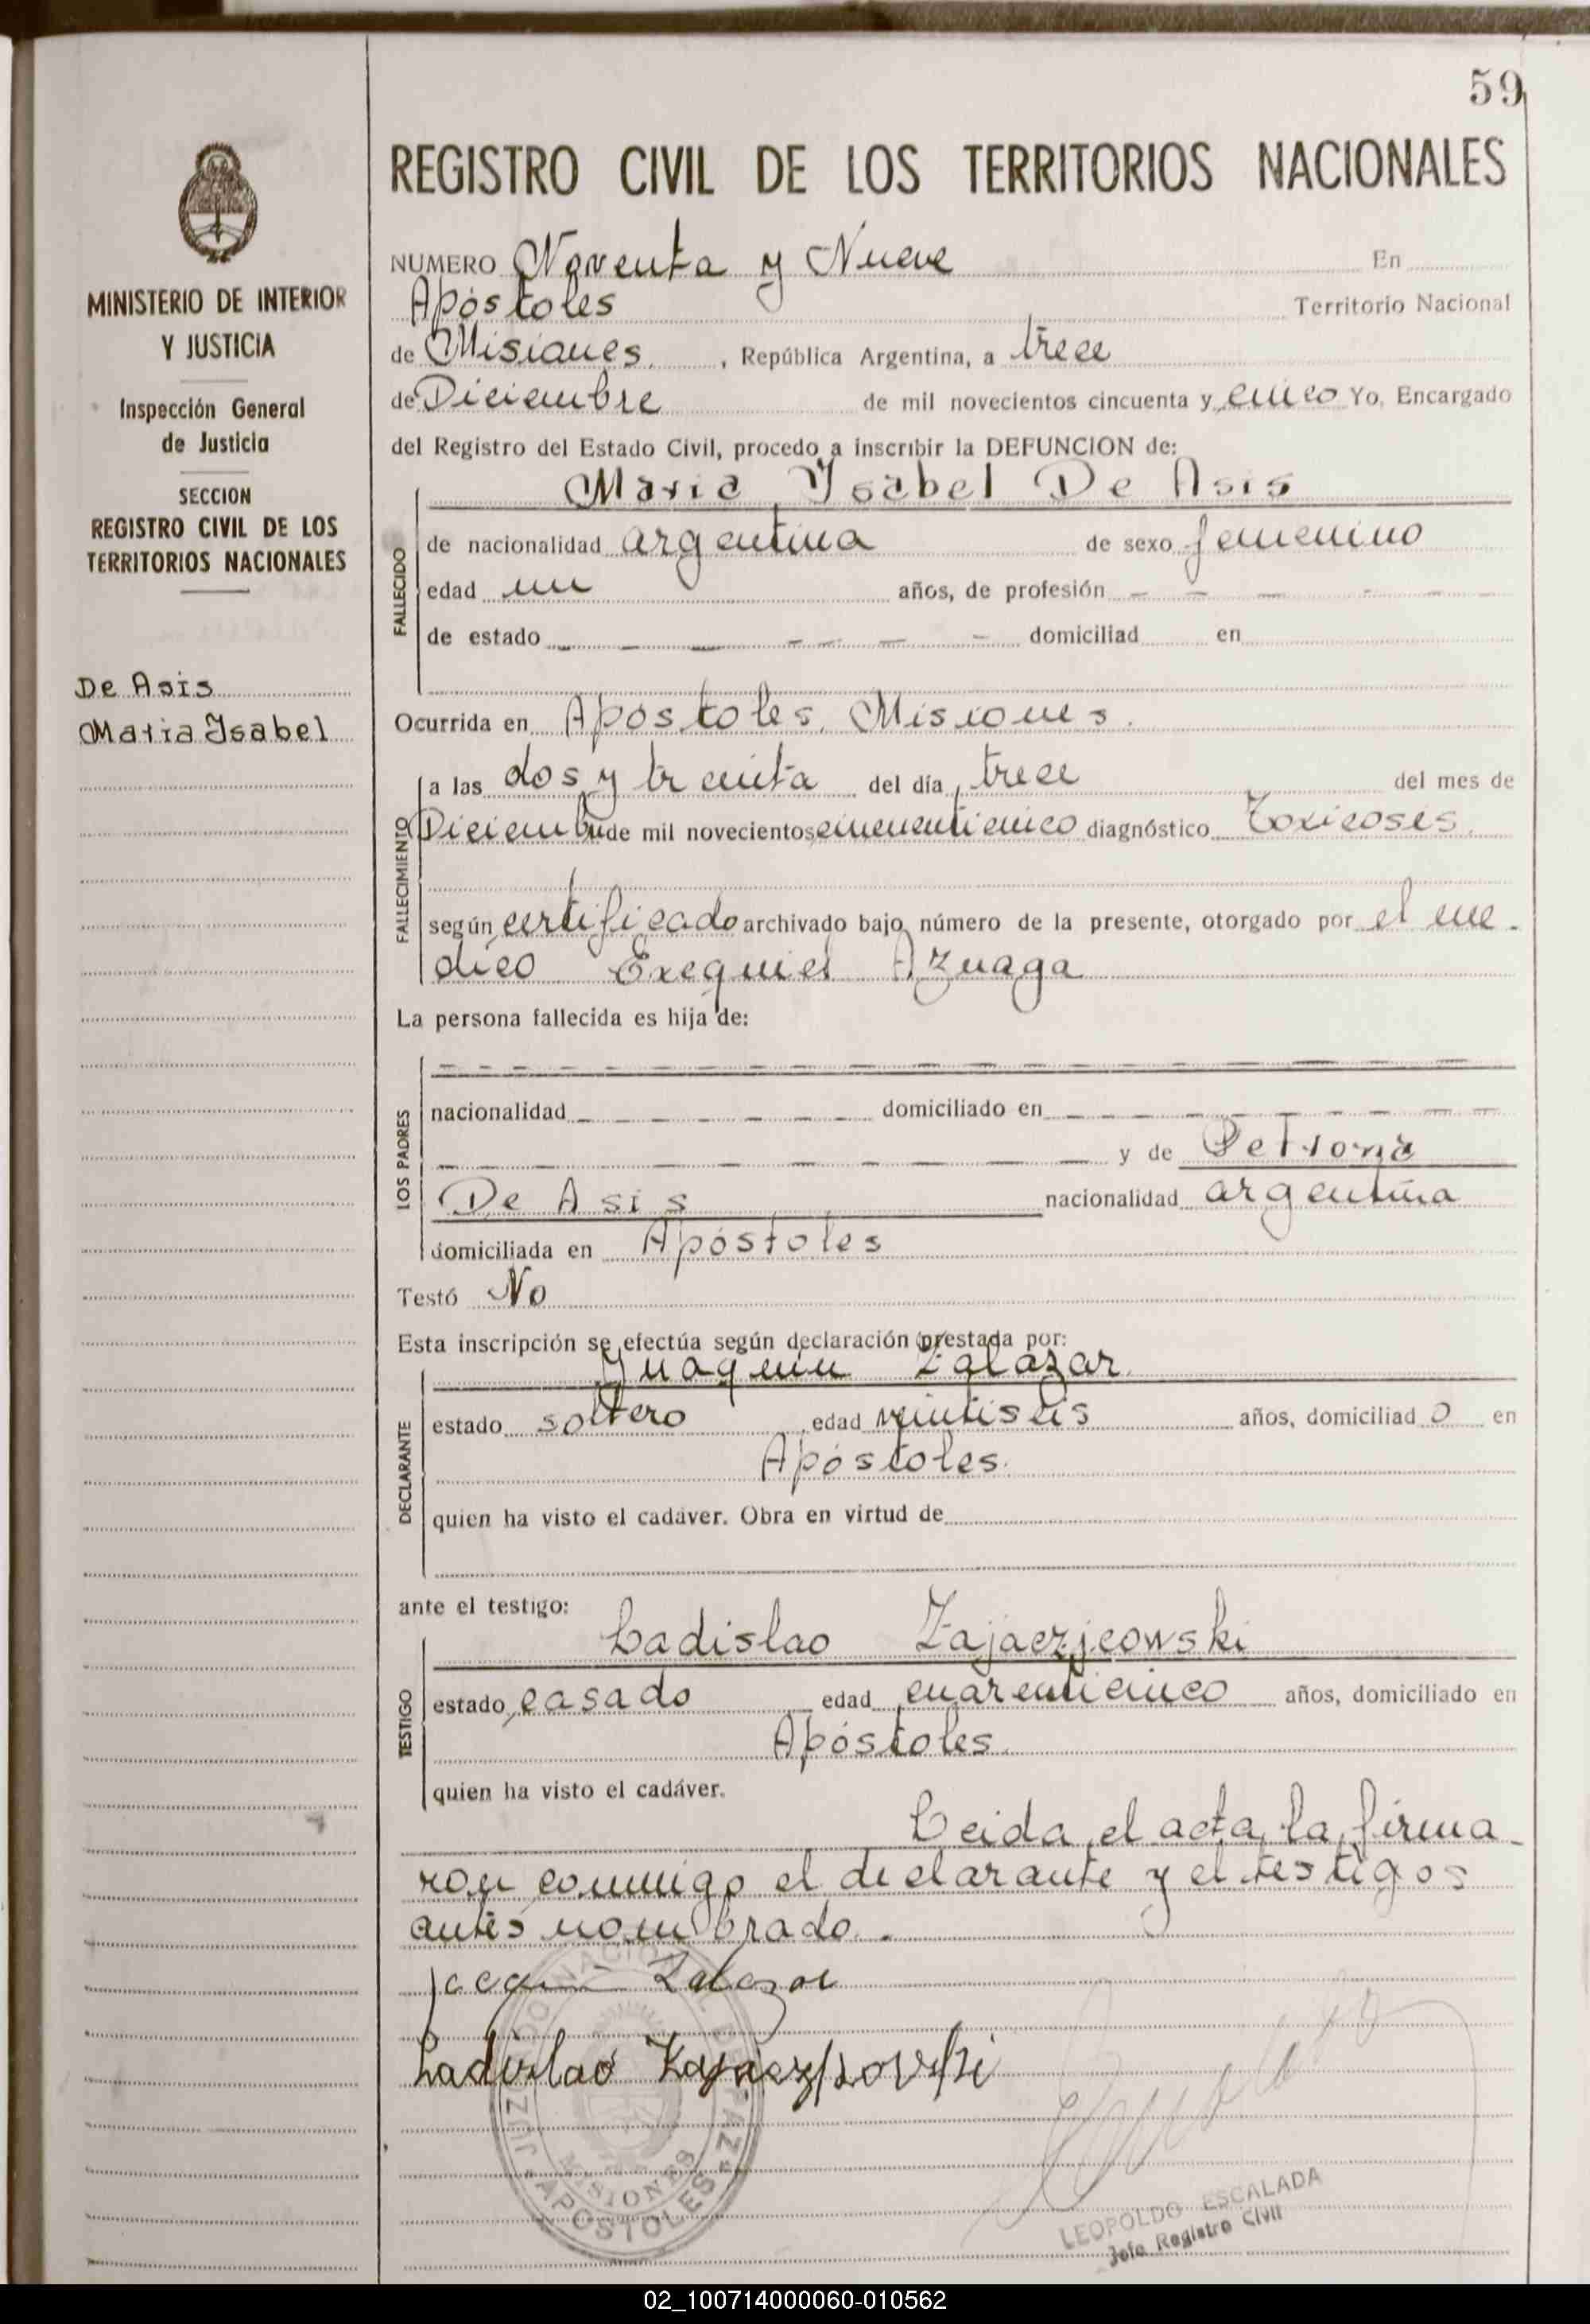 59
REGISTRO CIVIL DE LOS TERRITORIOS NACIONALES
MINISTERIO DE INTERIOR
Y JUSTICIA
Inspección General
de Justicia
SECCION
REGISTRO CIVIL DE LOS
TERRITORIOS NACIONALES
De Asis
Maria Ysabel
NUMERO Noventa y Nueve En
Apóstoles Territorio Nacional
de Misiones, República Argentina, a trece
de Diciembre de mil novecientos cincuenta y cinco Yo, Encargado
del Registro del Estado Civil, procedo a inscribir la DEFUNCION de:
Maria Ysabel De Asis
FALLECIDO
de nacionalidad argentina de sexo femenino
edad un años, de profesión - - - - -
de estado - - - - - domiciliad en
Ocurrida en Apóstoles, Misiones.
FALLECIMIENTO
a las dos y treinta del día trece del mes de
Diciembre de mil novecientos cincuenticinco diagnóstico Toxicosis
según certificado archivado bajo número de la presente, otorgado por el me-
dico Exequiel Azuaga
La persona fallecida es hija de:
LOS PADRES
nacionalidad - - - - - domiciliado en - - - - -
- - - - - y de Petrona
De Asis nacionalidad argentina
domiciliada en Apóstoles
Testó No
Esta inscripción se efectúa según declaración prestada por:
Juaquin Zalazar
DECLARANTE
estado soltero edad veintiseis años, domiciliad o en
Apóstoles.
quien ha visto el cadáver. Obra en virtud de
ante el testigo:
Ladislao Zajaczjcowski
TESTIGO
estado casado edad cuarenticinco años, domiciliado en
Apóstoles.
quien ha visto el cadáver.
Leida el acta, la firma-
ron conmigo el declarante y el testigos
antes nombrado.
Zalazar
Ladislao
JUZGADO NACIONAL DE PAZ
MISIONES
APOSTOLES
LEOPOLDO ESCALADA
Jefe Registro Civil
02_100714000060-010562